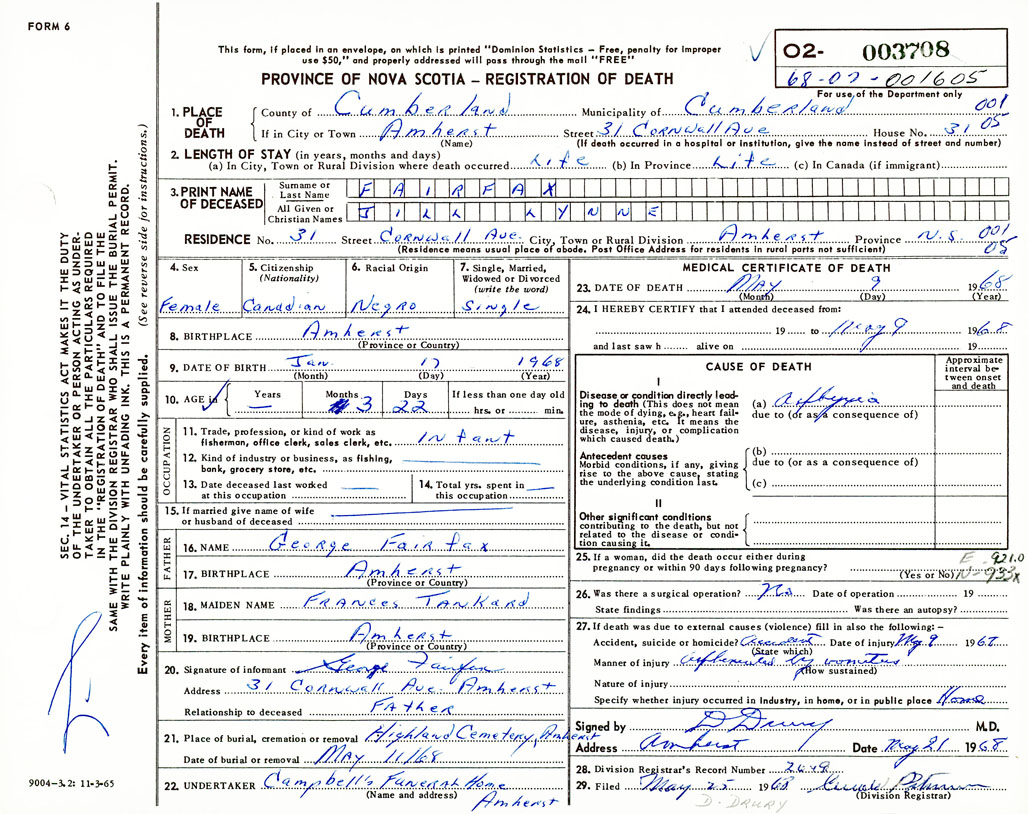 FORM 6
This form, if placed in an envelope, on which is printed "Dominion Statistics – Free, penalty for improper
use $50," and properly addressed will pass through the mail "FREE"
PROVINCE OF NOVA SCOTIA – REGISTRATION OF DEATH
O2- 003708
68-02-001605
For use of the Department only
1. PLACE OF DEATH
County of Cumberland Municipality of Cumberland 001
If in City or Town Amherst Street 31 Cornwall Ave House No. 31 05
(Name) (If death occurred in a hospital or institution, give the name instead of street and number)
2. LENGTH OF STAY (in years, months and days)
(a) In City, Town or Rural Division where death occurred Life (b) In Province Life (c) In Canada (if immigrant)
3. PRINT NAME OF DECEASED
Surname or Last Name FAIRFAX
All Given or Christian Names JILL LYNNE
RESIDENCE No. 31 Street Cornwall Ave. City, Town or Rural Division Amherst Province N.S. 001
(Residence means usual place of abode. Post Office Address for residents in rural parts not sufficient) 05
4. Sex
Female
5. Citizenship
(Nationality)
Canadian
6. Racial Origin
Negro
7. Single, Married,
Widowed or Divorced
(write the word)
Single
8. BIRTHPLACE Amherst
(Province or Country)
9. DATE OF BIRTH Jan. 17 1968
(Month) (Day) (Year)
10. AGE in
Years Months Days If less than one day old
3 22 hrs. or min.
OCCUPATION
11. Trade, profession, or kind of work as
fisherman, office clerk, sales clerk, etc. Infant
12. Kind of industry or business, as fishing,
bank, grocery store, etc.
13. Date deceased last worked
at this occupation
14. Total yrs. spent in
this occupation
15. If married give name of wife
or husband of deceased
FATHER
16. NAME George Fairfax
17. BIRTHPLACE Amherst
(Province or Country)
MOTHER
18. MAIDEN NAME Frances Tankard
19. BIRTHPLACE Amherst
(Province or Country)
20. Signature of informant George Fairfax
Address 31 Cornwall Ave. Amherst
Relationship to deceased Father
21. Place of burial, cremation or removal Highland Cemetery, Amherst
Date of burial or removal May 11/68
22. UNDERTAKER Campbell's Funeral Home
(Name and address) Amherst
MEDICAL CERTIFICATE OF DEATH
23. DATE OF DEATH May 9 1968
(Month) (Day) (Year)
24. I HEREBY CERTIFY that I attended deceased from:
19 to May 9 1968
and last saw h alive on 19
CAUSE OF DEATH
Approximate
interval be-
tween onset
and death
I
Disease or condition directly lead-
ing to death (This does not mean
the mode of dying, e.g., heart fail-
ure, asthenia, etc. It means the
disease, injury, or complication
which caused death.)
(a) Asphyxia
due to (or as a consequence of)
Antecedent causes
Morbid conditions, if any, giving
rise to the above cause, stating
the underlying condition last.
(b)
due to (or as a consequence of)
(c)
II
Other significant conditions
contributing to the death, but not
related to the disease or condi-
tion causing it.
25. If a woman, did the death occur either during
pregnancy or within 90 days following pregnancy?
(Yes or No)
E-921.0
N-933x
26. Was there a surgical operation? No Date of operation 19
State findings Was there an autopsy?
27. If death was due to external causes (violence) fill in also the following: –
Accident, suicide or homicide? Accident Date of injury May 9 1968
(State which)
Manner of injury asphyxiated by vomitus
(How sustained)
Nature of injury
Specify whether injury occurred in Industry, in home, or in public place Home
Signed by D Drury M.D.
Address Amherst Date May 21 1968
28. Division Registrar's Record Number 2649
29. Filed May 25 1968
(Division Registrar)
D. DRURY
SEC. 14 – VITAL STATISTICS ACT MAKES IT THE DUTY
OF THE UNDERTAKER OR PERSON ACTING AS UNDER-
TAKER TO OBTAIN ALL THE PARTICULARS REQUIRED
IN THE "REGISTRATION OF DEATH" AND TO FILE THE
SAME WITH THE DIVISION REGISTRAR WHO SHALL ISSUE THE BURIAL PERMIT.
WRITE PLAINLY WITH UNFADING INK. THIS IS A PERMANENT RECORD.
Every item of information should be carefully supplied. (See reverse side for instructions.)
9004-3.2: 11-3-65